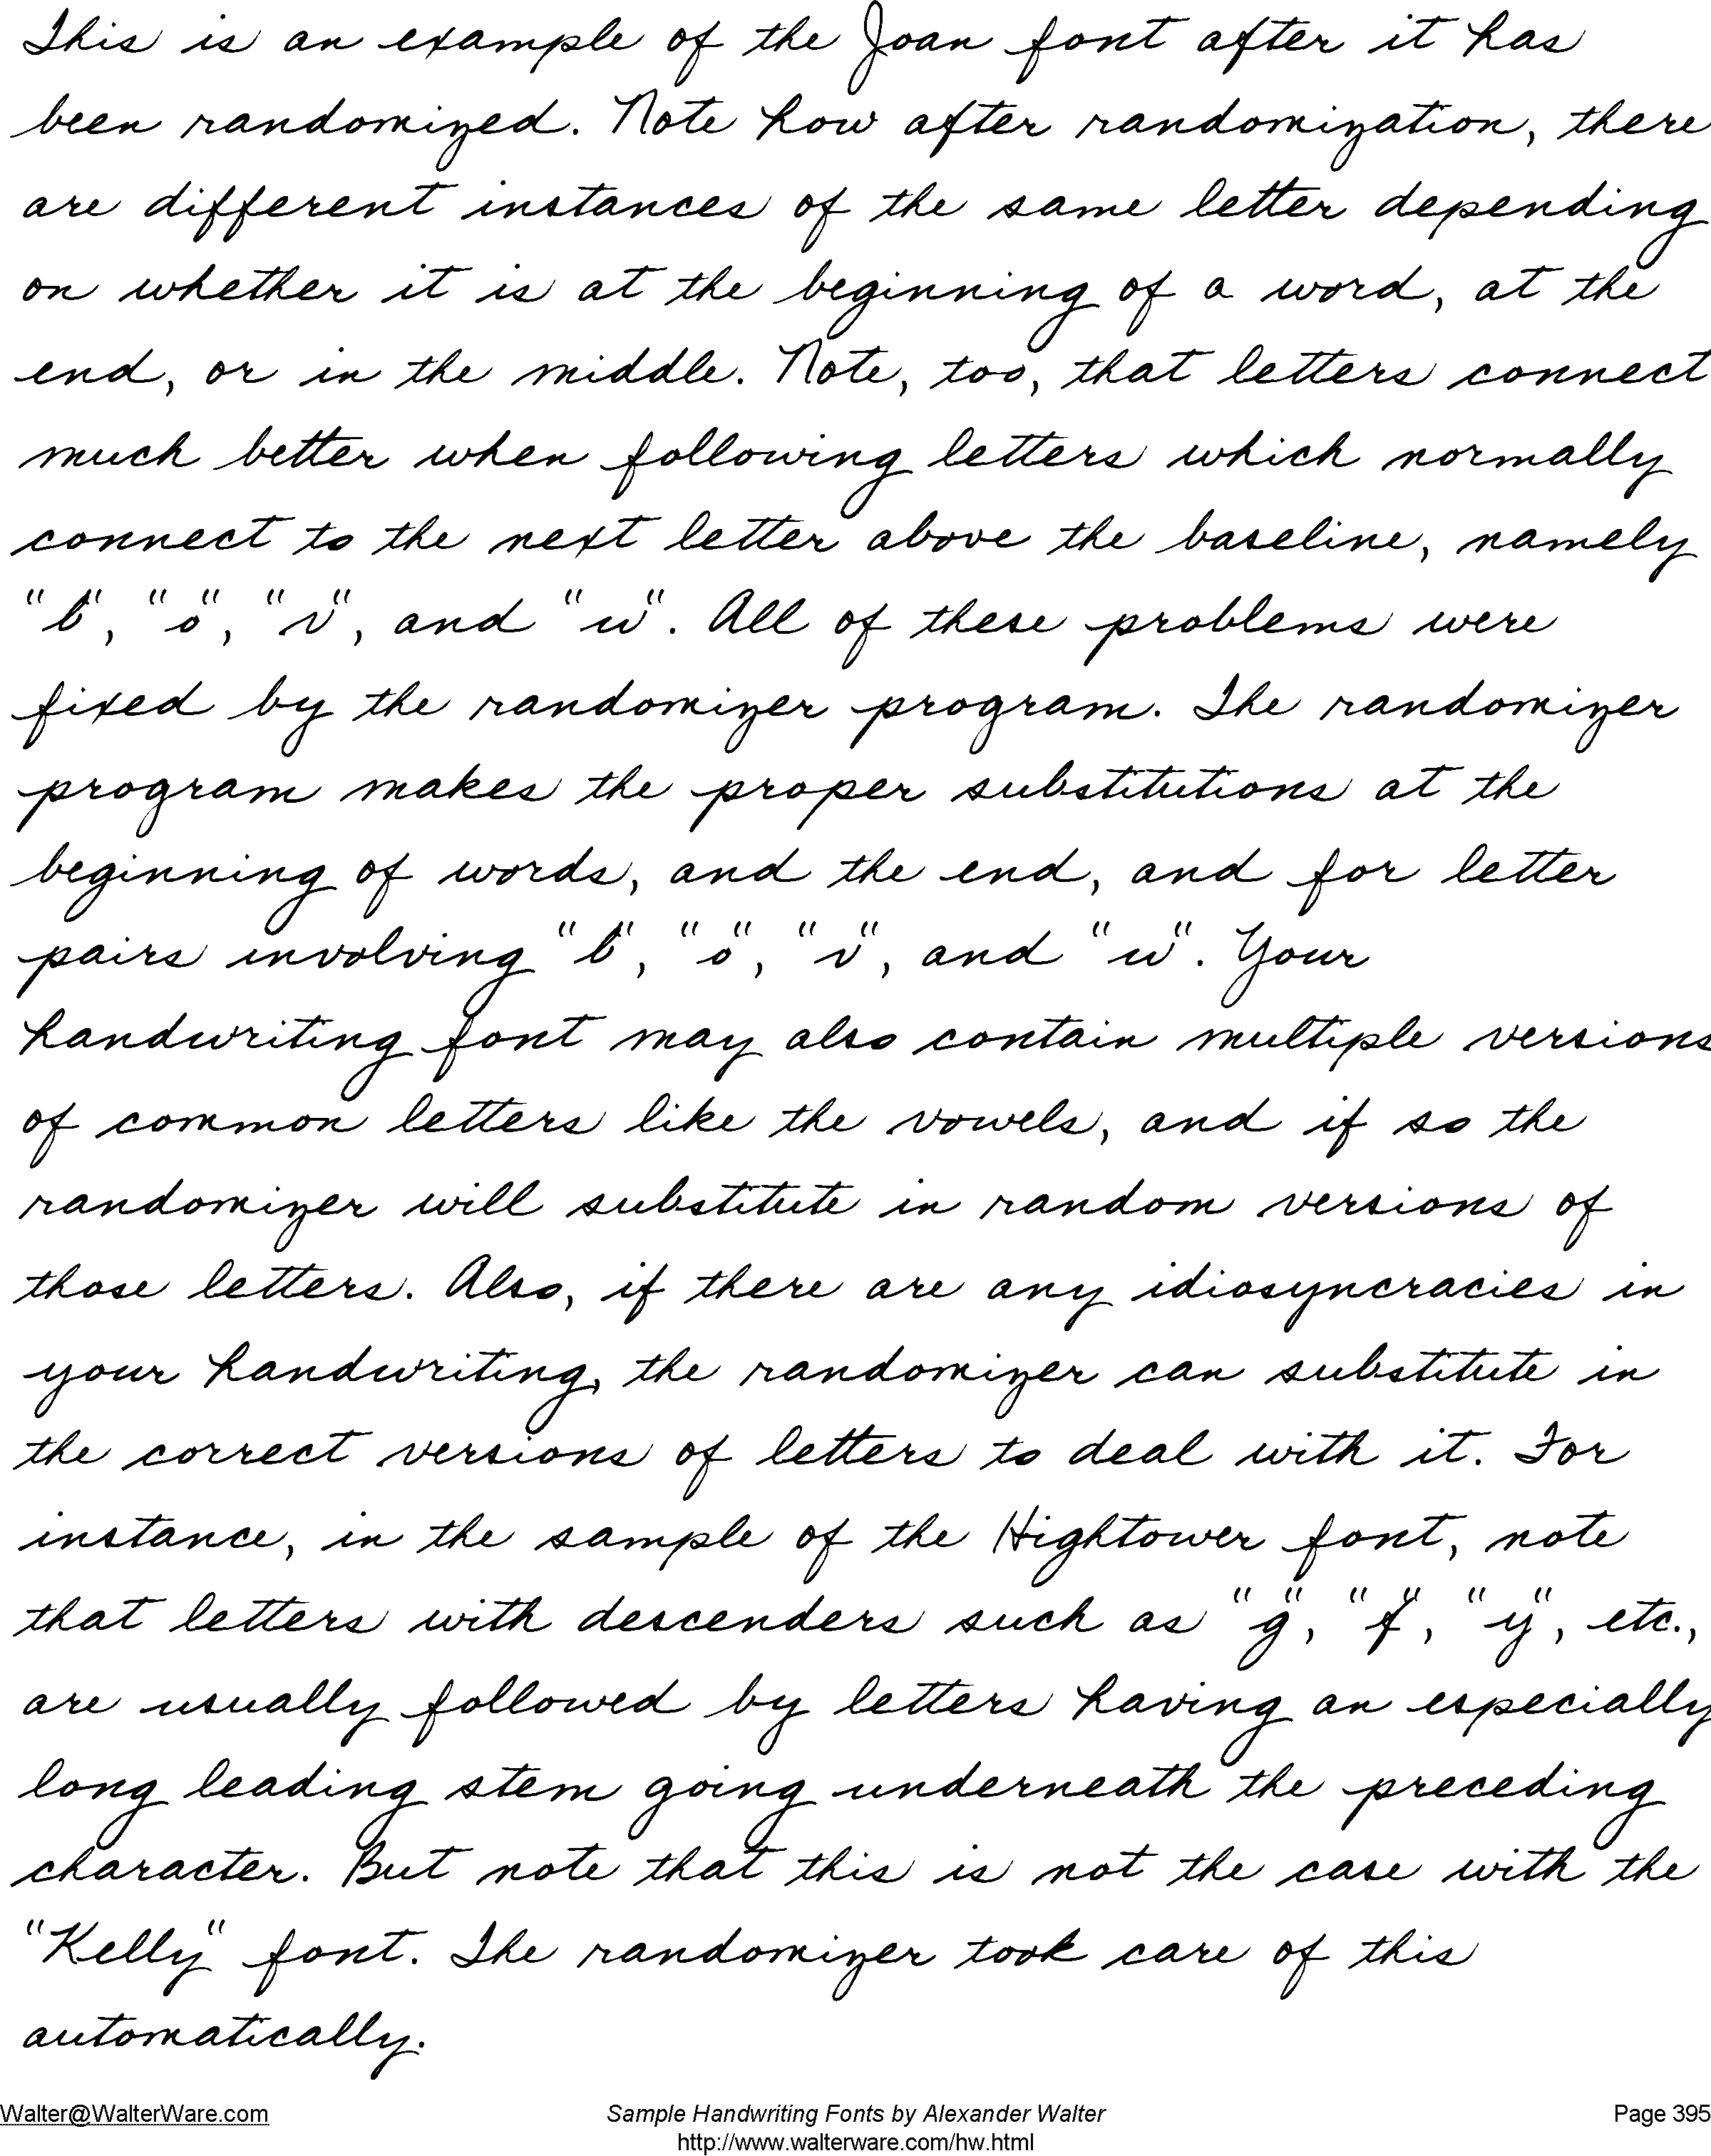 This is an example of the Joan font after it has
been randomized. Note how after randomization, there
are different instances of the same letter depending
on whether it is at the beginning of a word, at the
end, or in the middle. Note, too, that letters connect
much better when following letters which normally
connect to the next letter above the baseline, namely
"b", "o", "v", and "w". All of these problems were
fixed by the randomizer program. The randomizer
program makes the proper substitutions at the
beginning of words, and the end, and for letter
pairs involving "b", "o", "v", and "w". Your
handwriting font may also contain multiple versions
of common letters like the vowels, and if so the
randomizer will substitute in random versions of
those letters. Also, if there are any idiosyncracies in
your handwriting, the randomizer can substitute in
the correct versions of letters to deal with it. For
instance, in the sample of the Hightower font, note
that letters with descenders such as "g", "f", "y", etc.,
are usually followed by letters having an especially
long leading stem going underneath the preceding
character. But note that this is not the case with the
"Kelly" font. The randomizer took care of this
automatically.
Walter@WalterWare.com Sample Handwriting Fonts by Alexander Walter Page 395
http://www.walterware.com/hw.html